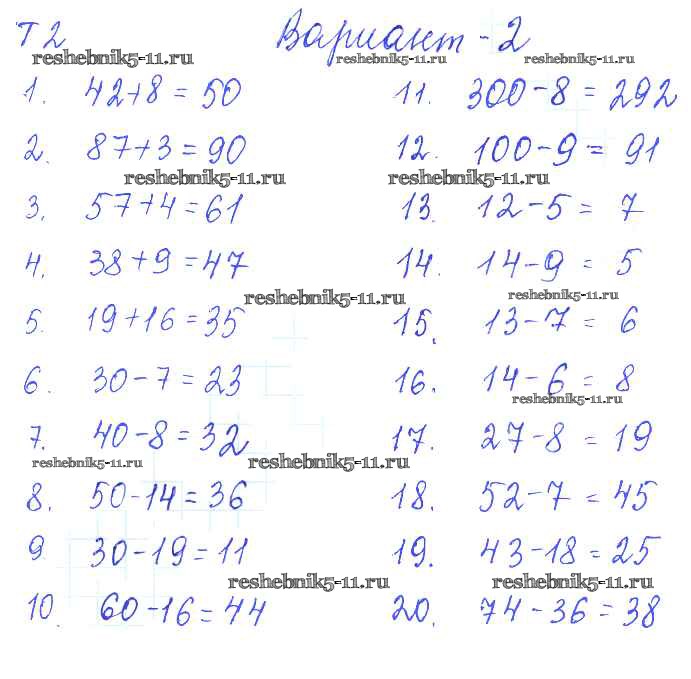 Т 2 Вариант - 2
reshebnik5-11.ru reshebnik5-11.ru reshebnik5-11.ru
1. 42+8 = 50
11. 300-8 = 292
2. 87+3 = 90
12. 100-9 = 91
reshebnik5-11.ru reshebnik5-11.ru
3. 57+4 = 61
13. 12-5 = 7
4. 38+9 = 47
14. 14-9 = 5
reshebnik5-11.ru reshebnik5-11.ru
5. 19+16 = 35
15. 13-7 = 6
6. 30-7 = 23
16. 14-6 = 8
reshebnik5-11.ru
7. 40-8 = 32
17. 27-8 = 19
reshebnik5-11.ru reshebnik5-11.ru
8. 50-14 = 36
18. 52-7 = 45
9. 30-19 = 11
19. 43-18 = 25
reshebnik5-11.ru reshebnik5-11.ru
10. 60-16 = 44
20. 74-36 = 38